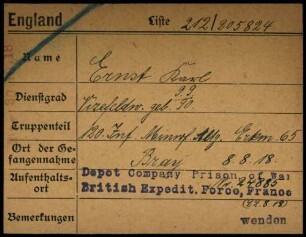 England Liste 212/205824
Name Ernst Karl
99
Dienstgrad Vizefeldw. geb. 90
Truppenteil 120. Inf. Erkm. 65
Ort der Ge-
fangennahme Bray 8.8.18.
Aufenthalts-
ort Depot Company Prison. of War
British Expedit. Force, France
(22.8.18)
Bemerkungen wenden